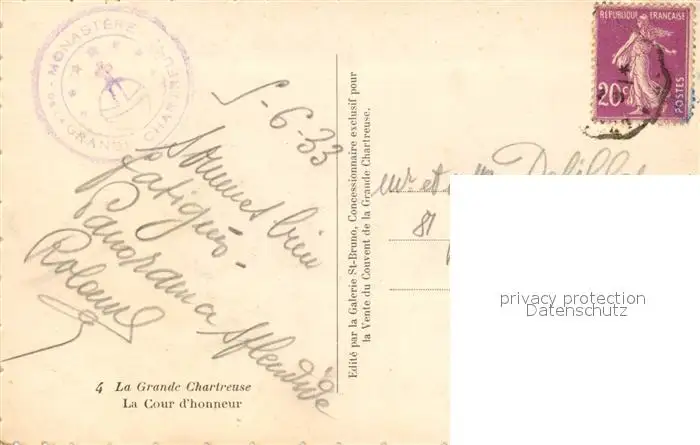 MONASTÈRE
GRANDE CHARTREUSE
5-6-33
Sommes bien
fatigués -
Panorama splendide
Roland
4 La Grande Chartreuse
La Cour d'honneur
Edité par la Galerie St-Bruno, Concessionnaire exclusif pour
la Vente du Couvent de la Grande Chartreuse.
REPUBLIQUE FRANÇAISE
20c
POSTES
Mr et Mme
81
privacy protection
Datenschutz